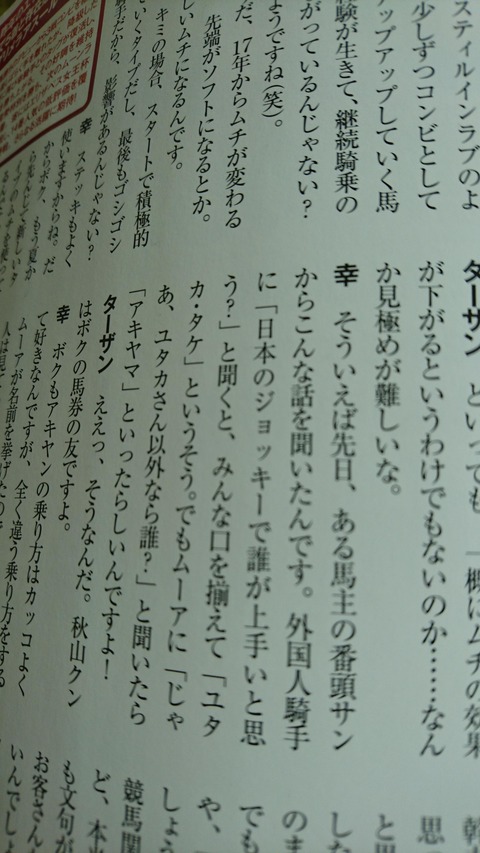 スティルインラブのよ
少しずつコンビとして
アップアップしていく馬
験が生きて、継続騎乗の
がっているんじゃない?
ようですね(笑)。
だ、17年からムチが変わる
先端がソフトになるとか。
しいムチになるんです。
キミの場合、スタートで積極的
いくタイプだし、最後もゴシゴシ
手だから、影響があるんじゃない?
幸 ステッキもよく
使いますからね。だ
からボク、もう夏か
ターザン といっても、一概にムチの効果
が下がるというわけでもないのか……なん
か見極めが難しいな。
幸 そういえば先日、ある馬主の番頭サン
からこんな話を聞いたんです。外国人騎手
に「日本のジョッキーで誰が上手いと思
う?」と聞くと、みんな口を揃えて「ユタ
カ・タケ」というそう。でもムーアに「じゃ
あ、ユタカさん以外なら誰?」と聞いたら
「アキヤマ」といったらしいんですよ!
ターザン ええっ、そうなんだ。秋山クン
はボクの馬券の友ですよ。
幸 ボクもアキヤンの乗り方はカッコよく
て好きなんですが、全く違う乗り方をする
ムーアが名前を挙げたので
思
と思
しな
のま
でも
や、
しょう
競馬関
ど、本当
も文句が
お客さん
いんでしょ